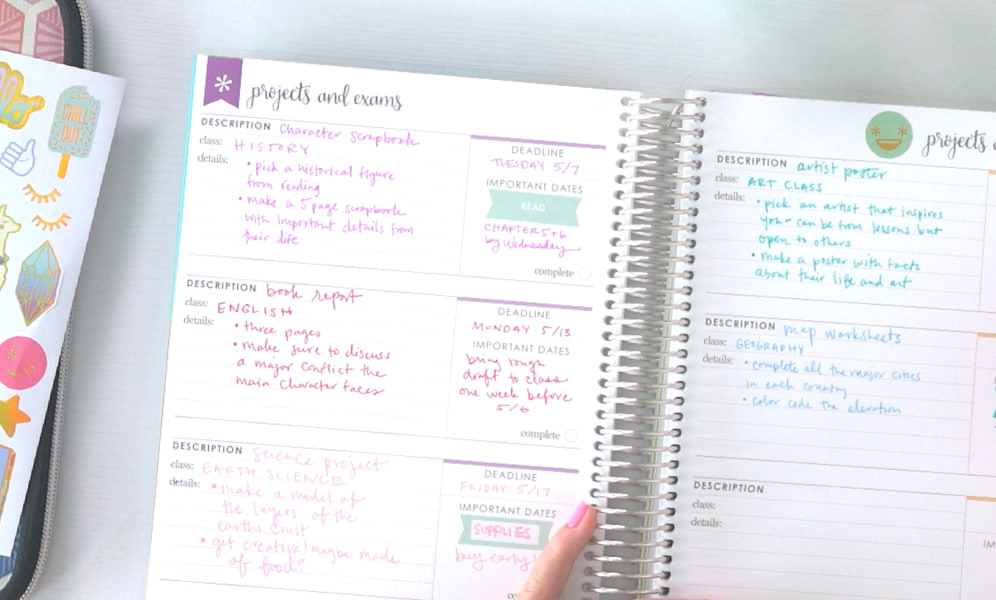 CHILL
OUT
projects and exams
DESCRIPTION character scrapbook
class: HISTORY
details: • pick a historical figure
from reading
• make a 5 page scrapbook
with important details from
their life
DEADLINE
TUESDAY 5/7
IMPORTANT DATES
READ
CHAPTER 5+6
by Wednesday
complete
DESCRIPTION book report
class: ENGLISH
details: • three pages
• make sure to discuss
a major conflict the
main character faces
DEADLINE
MONDAY 5/13
IMPORTANT DATES
bring rough
draft to class
one week before
5/6
complete
DESCRIPTION science project
class: EARTH SCIENCE
details: • make a model of
the layers of the
earths crust
• get creative! maybe made
of food?
DEADLINE
FRIDAY 5/17
IMPORTANT DATES
SUPPLIES
buy early!
projects
DESCRIPTION artist poster
class: ART CLASS
details: • pick an artist that inspires
you - can be from lessons but
open to others
• make a poster with facts
about their life and art
DESCRIPTION map worksheets
class: GEOGRAPHY
details: • complete all the major cities
in each country
• color code the elevation
DESCRIPTION
class:
details: